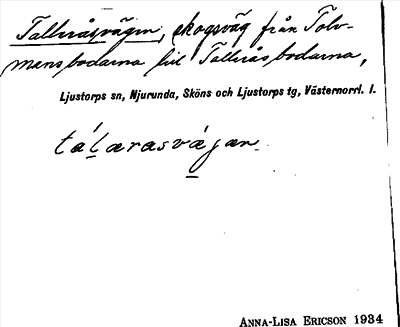 Tallråsvägen, skogsväg från Tolv-
mansbodarna till Tallråsbodarna,
Ljustorps sn, Njurunda, Sköns och Ljustorps tg, Västernorrl. l.
tálærasvægan
ANNA-LISA ERICSON 1934